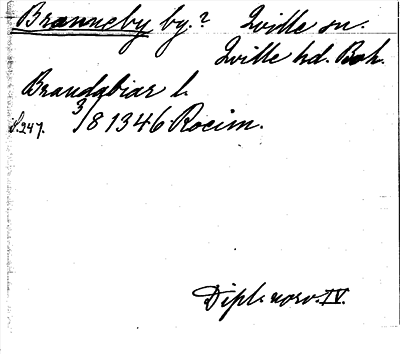 Branneby by.? Tville sn.
Tville hd. Boh.
Brandabiar l.
S. 247. 3/8 1346 Rocim.
Dipl. norv. IV.